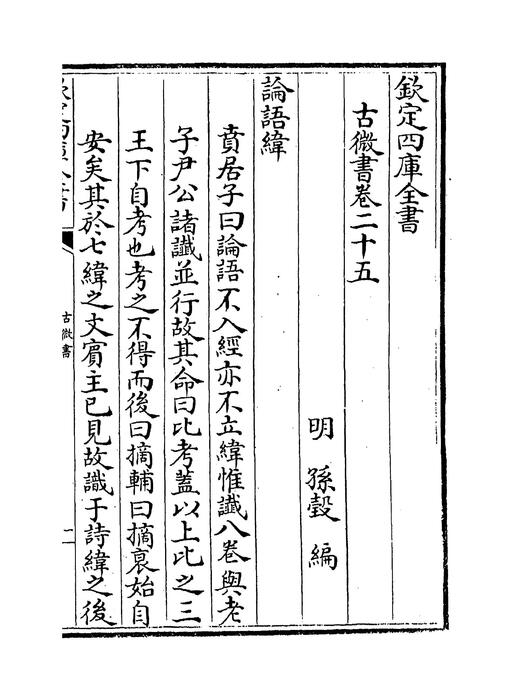 欽定四庫全書
古微書卷二十五
明 孫瑴 編
論語緯
賁居子曰論語不入經亦不立緯惟讖八卷與老
子尹公諸讖並行故其命曰比考蓋以上比之三
王下自考也考之不得而後曰摘輔曰摘襄始自
安矣其於七緯之文賓主已見故識于詩緯之後
古微書